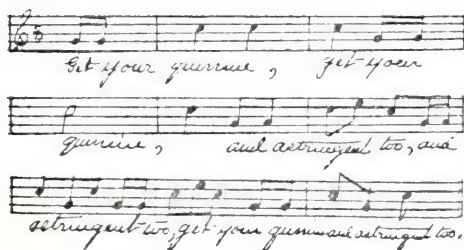 Get your quinine, get your
quinine, and astringent too, and
astringent too, get your quinine and astringent too.